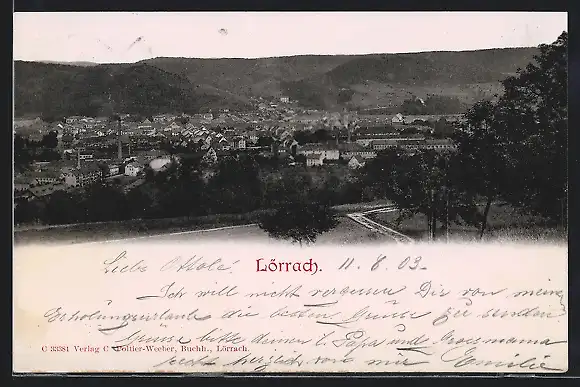 Liebe Ottole! Lörrach. 11. 8. 03.
Ich will nicht vergessen Dir von meinem
Erholungsurlaube die besten Grüsse zu senden
Grüsse bitte deinen l. Papa und Grossmama
C 33381 Verlag C. Poltier-Weeber, Buchh., Lörrach.
recht herzlich von mir Emilie